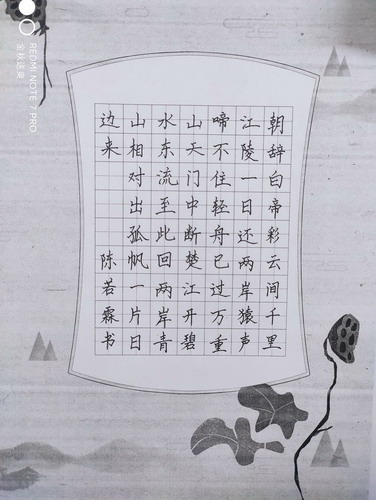 朝辞白帝彩云间千里
江陵一日还两岸猿声
啼不住轻舟已过万重
山天门中断楚江开碧
水东流至此回两岸青
山相对出孤帆一片日
边来 陈若霖书
REDMI NOTE 7 PRO